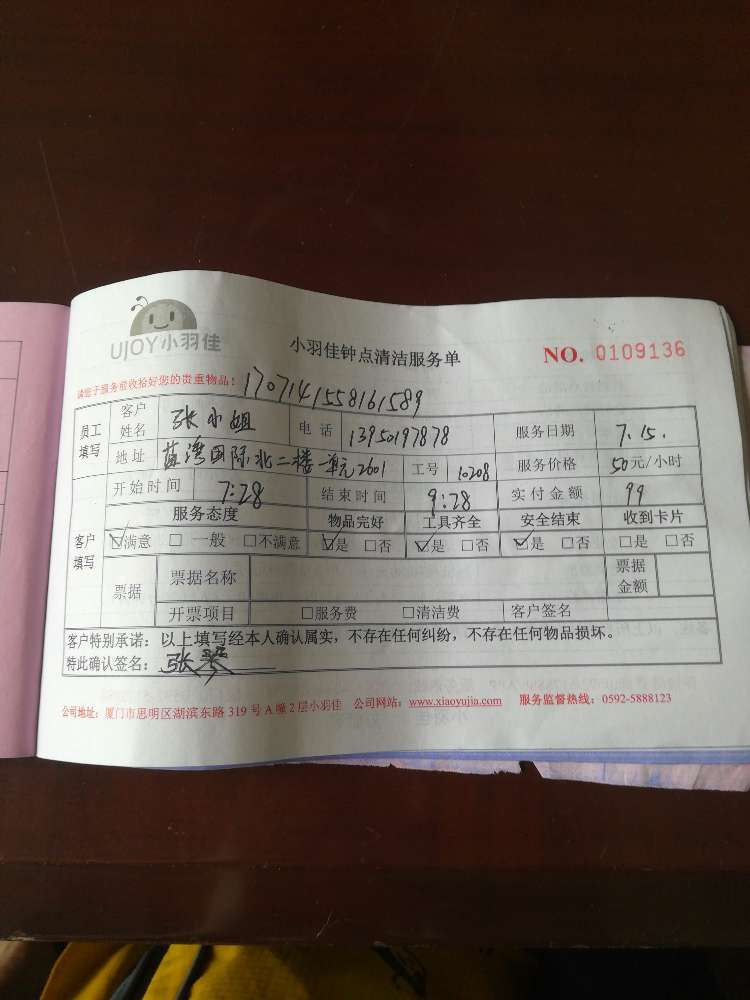 UJOY小羽佳
小羽佳钟点清洁服务单
NO. 0109136
请您于服务前收拾好您的贵重物品!
1707141558161589
员工填写 客户姓名 张小姐 电话 13950197878 服务日期 7.15.
地址 蓝湾国际北二楼一单元2601 工号 10208 服务价格 50元/小时
开始时间 7:28 结束时间 9:28 实付金额 99
客户填写 服务态度 物品完好 工具齐全 安全结束 收到卡片
☑满意 □一般 □不满意 ☑是 □否 ☑是 □否 ☑是 □否 □是 □否
票据 票据名称 票据金额
开票项目 □服务费 □清洁费 客户签名
客户特别承诺:以上填写经本人确认属实,不存在任何纠纷,不存在任何物品损坏。
特此确认签名:张
公司地址:厦门市思明区湖滨东路 319 号 A 幢 2 层小羽佳 公司网站:www.xiaoyujia.com 服务监督热线:0592-5888123